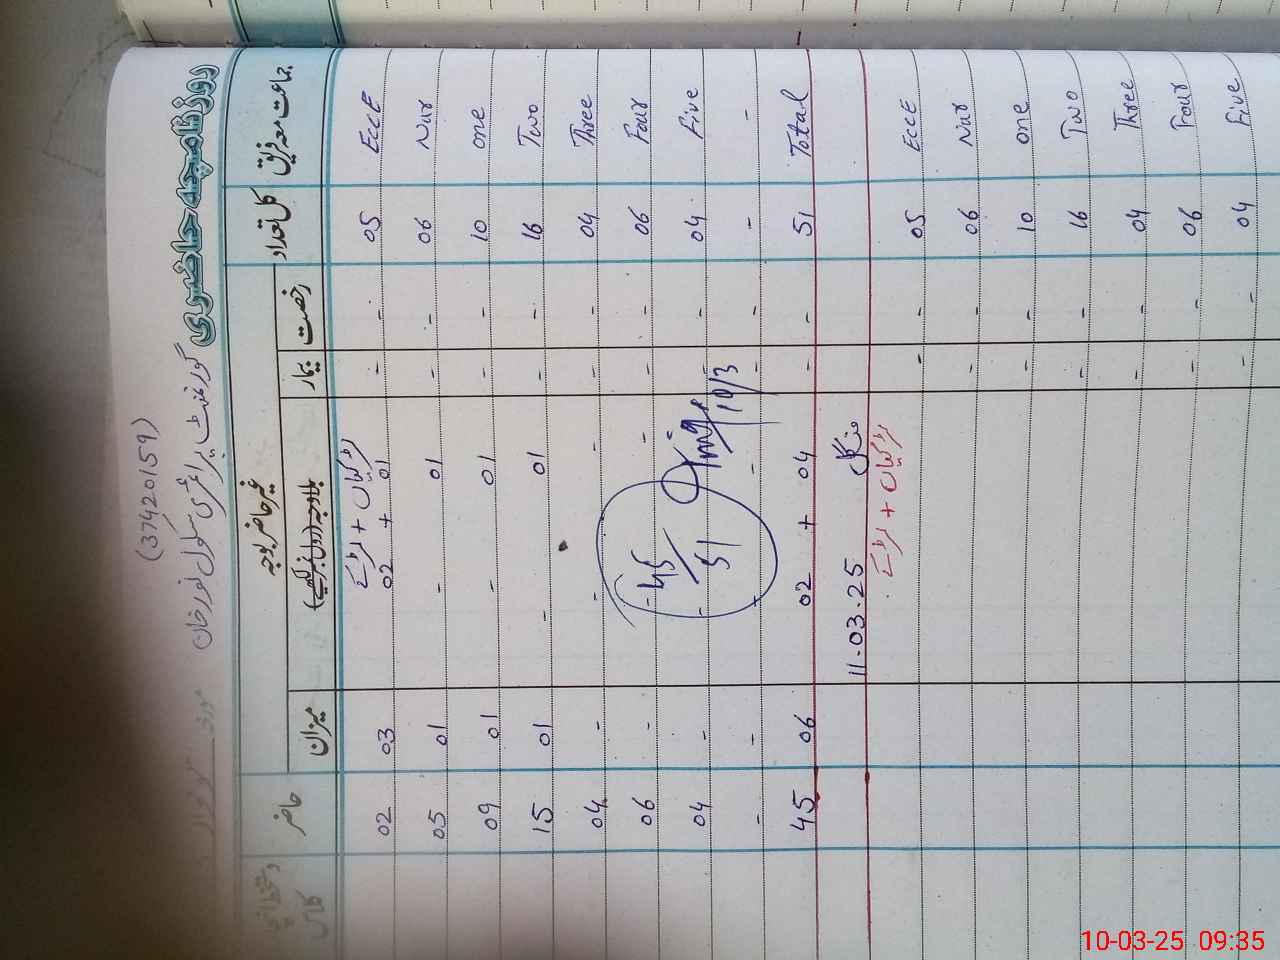 روزنامچہ حاضری
گورنمنٹ پرائمری سکول نور خان
(37420159)
جماعت معہ فریق کل تعداد غیر حاضر بوجہ حاضر
رخصت بیمار بلاوجہ (رول نمبر لکھیے) میزان
لڑکے + لڑکیاں
EccE 05 - - 01 + 02 03 02
Nur 06 - - 01 - 01 05
one 10 - - 01 - 01 09
Two 16 - - 01 - 01 15
Three 04 - - - - - 04
Four 06 - - - - - 06
Five 04 - - - - - 04
- - - - - - - -
Total 51 - - 04 + 02 06 45
45/51
10/3
منگل 11.03.25
لڑکے + لڑکیاں
EccE 05 - -
Nur 06 - -
one 10 - -
Two 16 - -
Three 04 - -
Four 06 - -
Five 04 - -
10-03-25 09:35